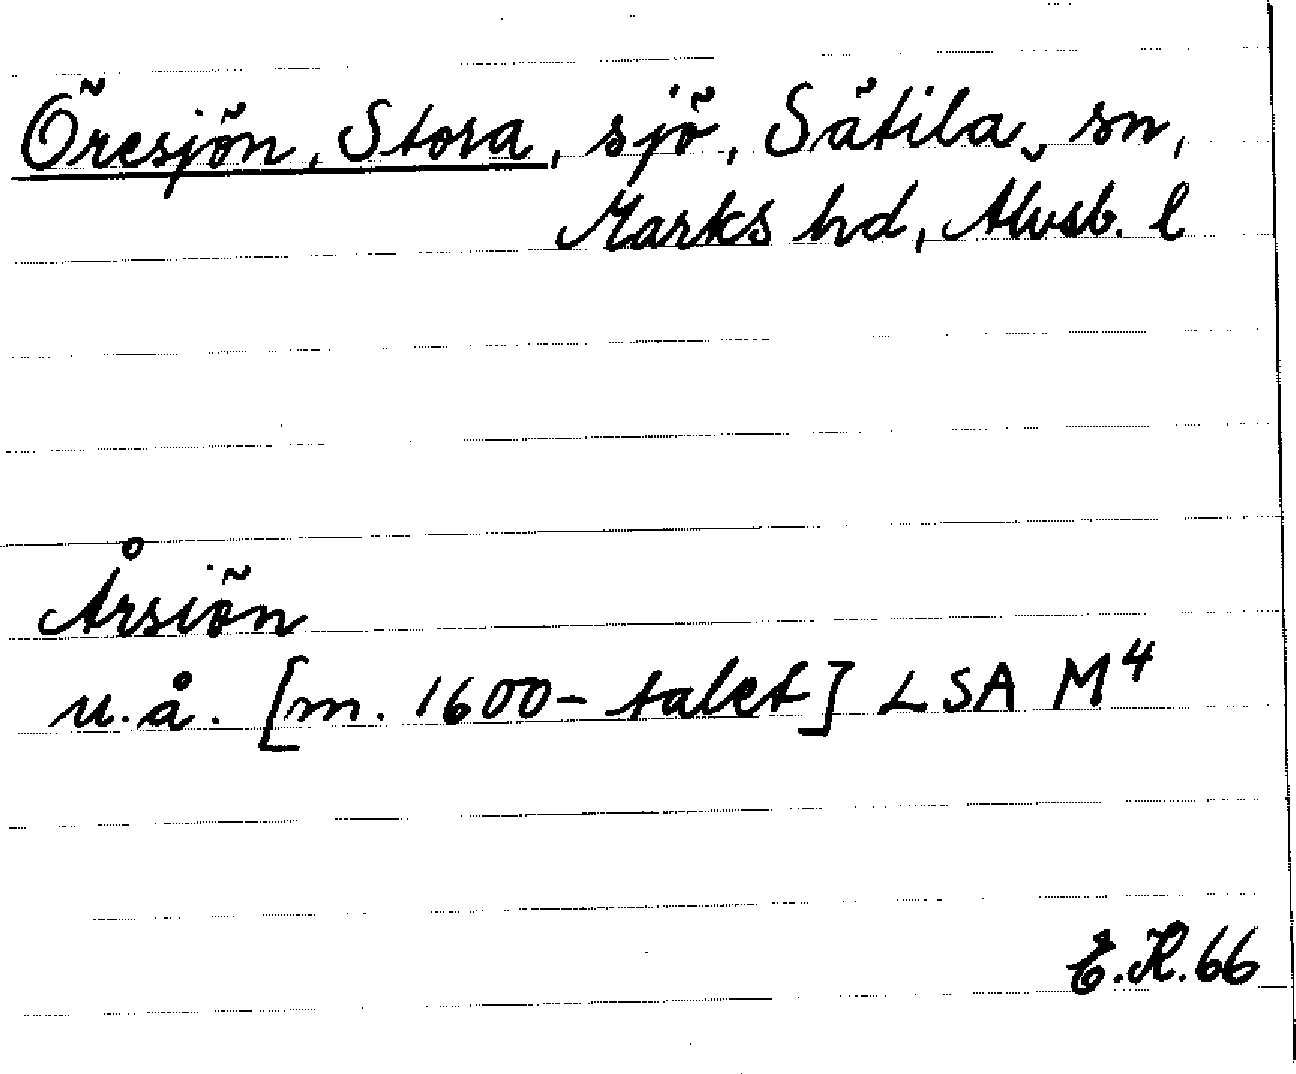 Öresjön, Stora, sjö, Sätila sn,
Marks hd, Älvsb. l
Årsiön
u.å. [m. 1600-talet] LSA M4
E.H.66